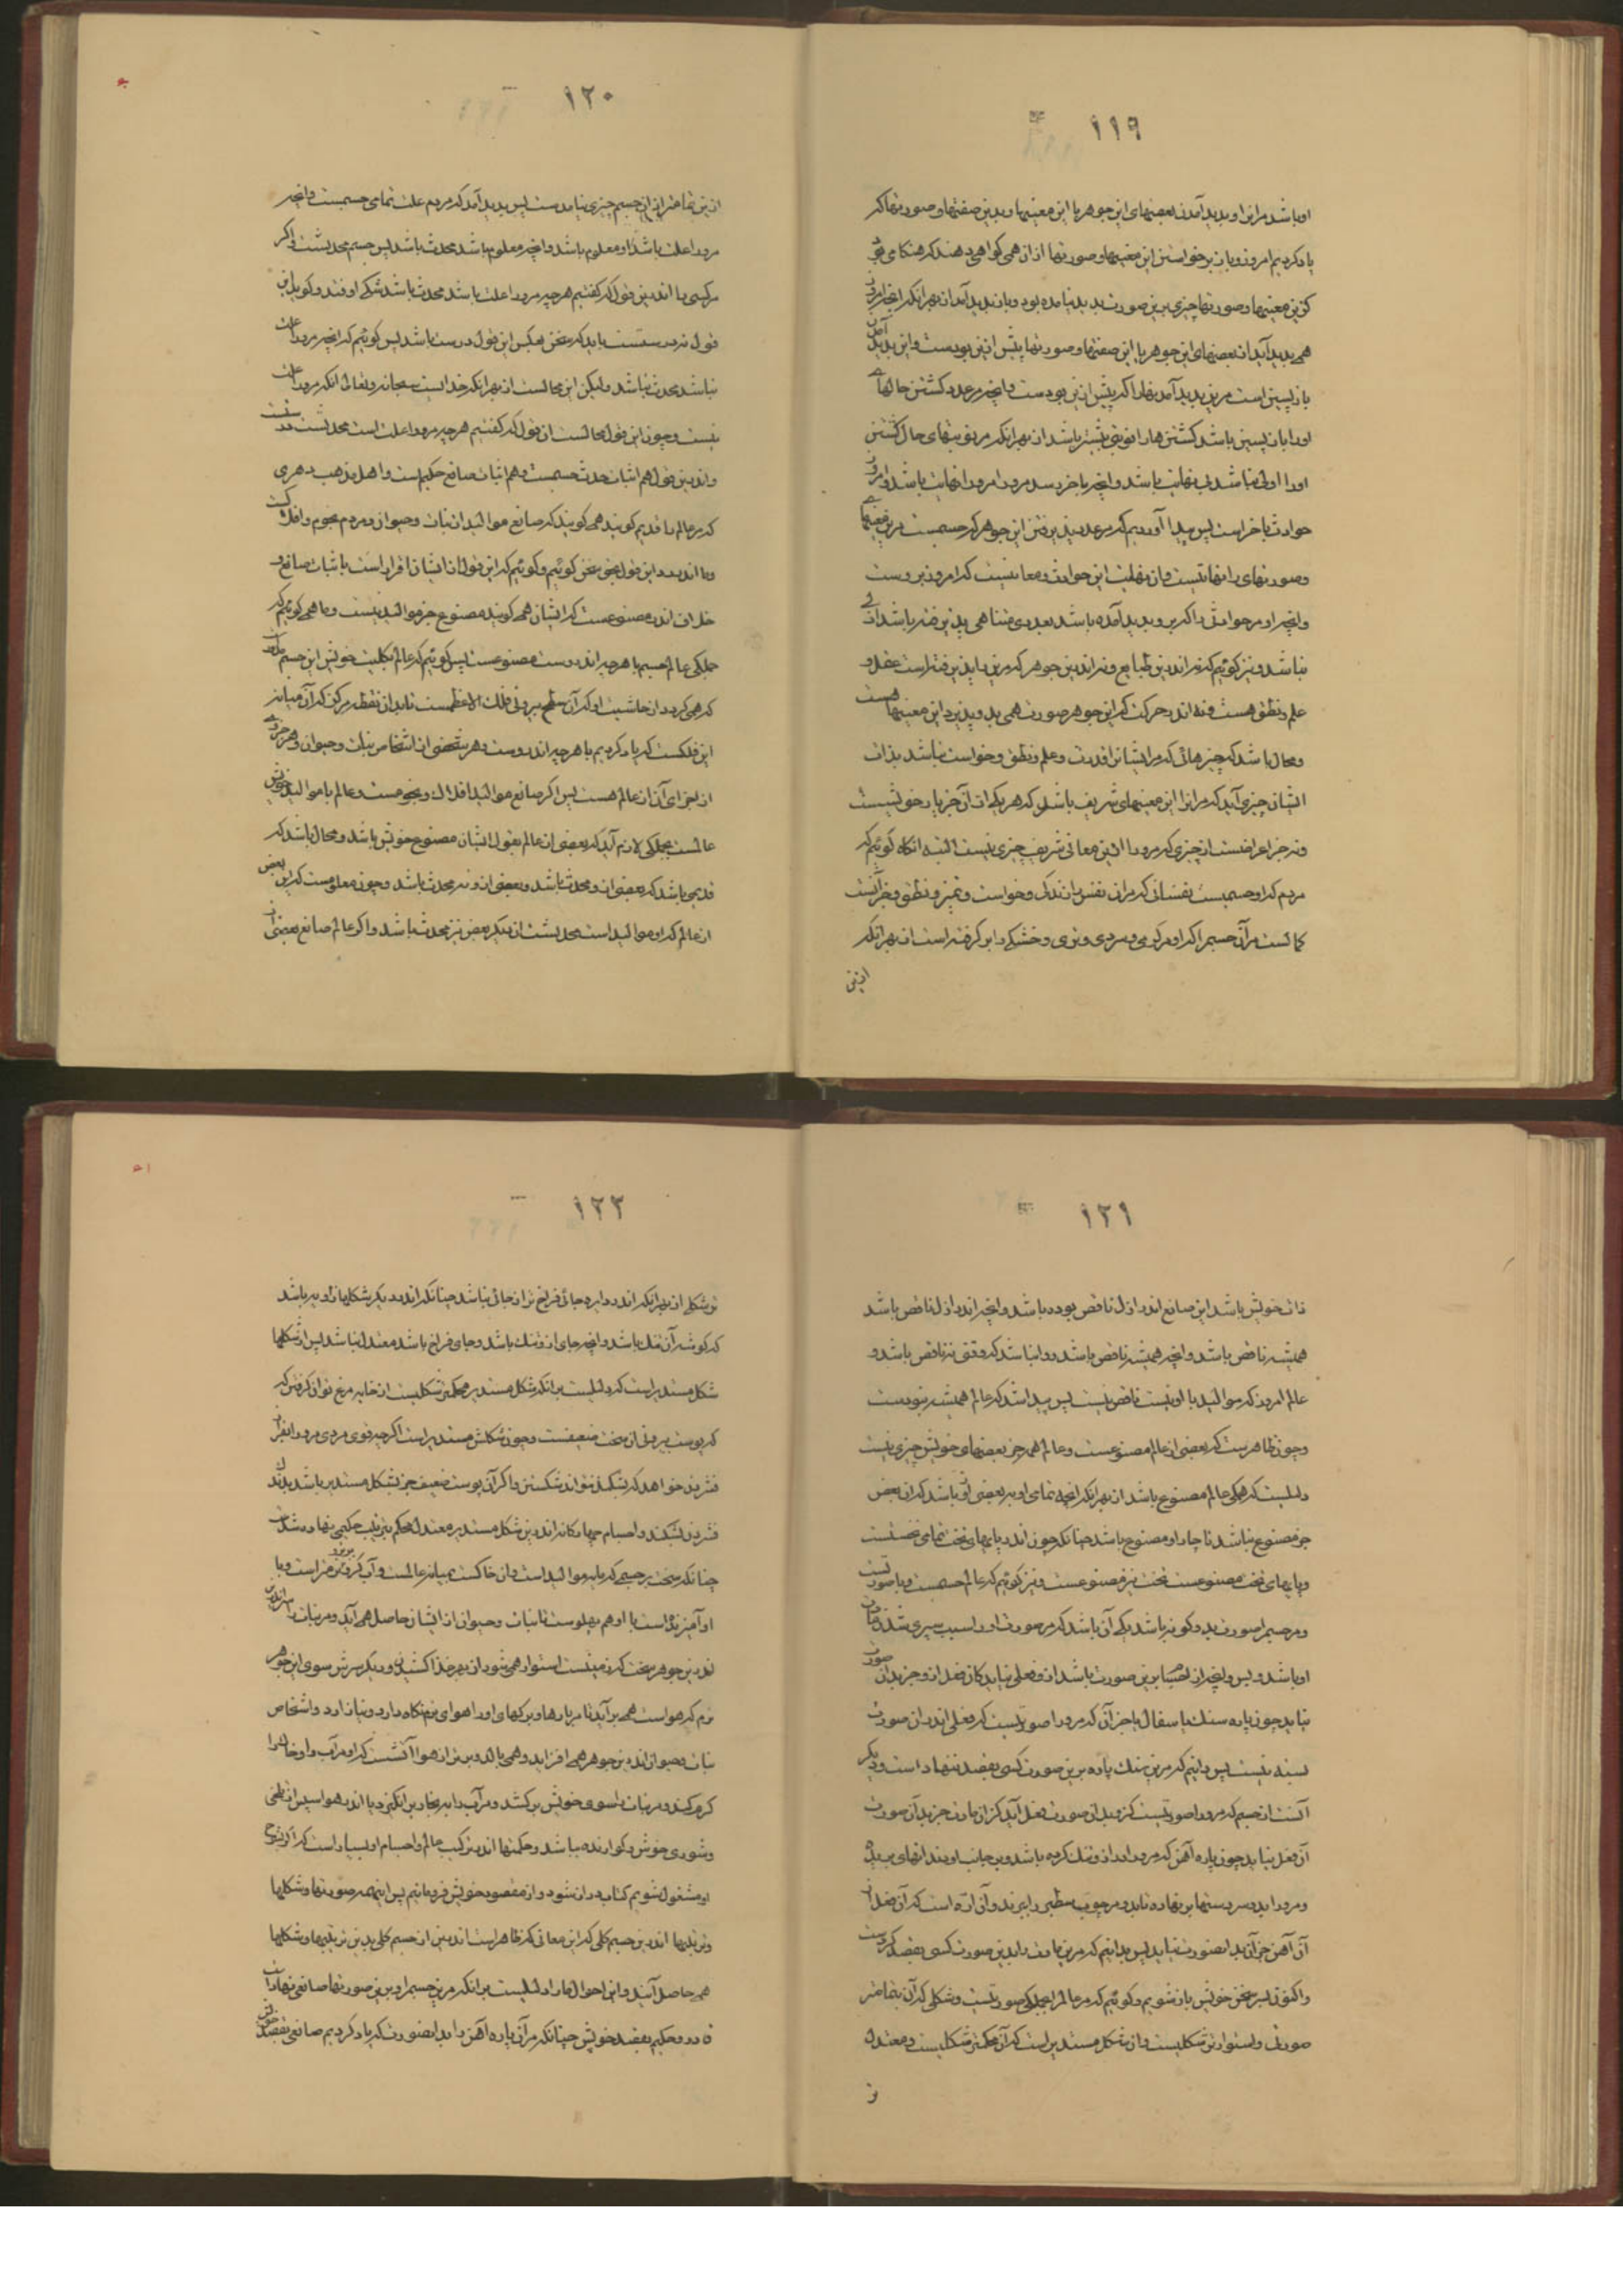 ١١٩
او باشد مر این او پدید آمدن بعضیهای این جوهر با این معنیها و بدین صفتها و صورتها که
یاد کردیم امروز و باز برخواستن این معنیها و صورتها ازان همی گواهی دهند که هنگامی بود
کزین معنیها و صورتها چیزی برین صورت پدید نیامده بود و باز پدید آمدن بهر آنکه آنچه امروز
همی پدید آید از بعضیهای این جوهر با این صفتها و صورتها پیش ازین بودست و این پدید آمدن
باز پسین است مرین پدید آمدنها را که پیش ازین بودست و آنچه مر عدد گشتن حالهای
او را باز پسین باشد گشتن ها را نوبتی پیشتر باشد از بهر آنکه مر نوبتهای حال گشتن
او را اولی نباشد بی نهایت باشد و آنچه باخر رسد مرورا مرورا نهایت باشد و امروز
حوادث باخر است پس پیدا آوردیم که مر عدد پذیرفتن این جوهر که جسمست مرین معنیهای
وصورتهای را نهایتست و آن نهایت این حوادث و معانیست که امروز بروست
و آنچه او مر حوادثی را که برو پدید آمده باشد بعددی متناهی پذیرفته باشد ازلی
نباشد و نیز گوئیم که نه اندرین طبایع و نه اندرین جوهر که مرین را پذیرفته است عقل و
علم و نطق هست و نه اندر حرکت که این جوهر صورت همی بدو پذیرد این معنیها هست
ومحال باشد که چیزهائی که مر ایشان را قدرت و علم و نطق و خواست نباشد بذات
ایشان چیزی آید که مر انرا این معنیهای شریف باشد که هر یکی ازان چیز پادرخویشست
ونه جز اعراضست از چیزی که مرورا ازین معانی شریف چیزی نیست البته انگاه گوئیم که
مردم که او جسمیست نفسانی که مران نفس را زندگی و خواست و تمیز و نطق و جز آنست
کمالست مرآن جسم را که او مر گرمی و سردی و تری و خشکی را بر گرفته است از بهر آنکه
ازین
١٢٠
ازین تمامتر ازان جسم چیزی نیامدست پس پدید آمد که مردم علت تمامی جسمست و آنچه
مرورا علت باشد او معلوم باشد و آنچه معلوم باشد محدث باشد پس جسم محدثست و اگر
مر کسی را اندرین قول که گفتیم هر چه مرورا علت باشد محدث باشد شکی اوفتد و گوید این
قول نه درستست باید که سخن بعکس این قول درست باشد پس گوئیم که آنچه مرورا علت
نباشد محدث نباشد ولیکن این محالست از بهر آنکه خدایست سبحانه و تعالی آنکه مرورا علت
نیست و چون این قول محالست آن قول که گفتیم هر چه مرورا علت است محدثست درستست
واندرین قول هم اثبات حدث جسمست و هم اثبات صانع حکیم است و اهل مذهب دهری
که مر عالم را قدیم گویند همی گویند که صانع موالید از نبات و حیوان و مردم نجوم و افلاکست
وما اندر رد این قول نیز سخن گوئیم و گوئیم که این قول از ایشان اقرار است باثبات صانع و
خلاف اندر مصنوعست که ایشان همی گویند مصنوع جز موالید نیست و ما همی گوئیم که
جملگی عالم جسم با هر چه اندروست مصنوعست پس گوئیم که عالم بکلیت خویش این جسم مدور
که همی گردد از حاشیت او که آن سطح بیرونی فلک الاعظمست تا بدان نقطه مرکز که آن میانه
این فلکست که یاد کردیم با هر چه اندروست و هر شخصی از اشخاص نبات و حیوان و هر جزوی
از اجزای آن از عالم هست پس اگر صانع موالید افلاک و نجومست و عالم با موالید خویش
عالمست بجملگی لازم آید که بعضی از عالم بقول ایشان مصنوع خویش باشد و محال باشد که
قدیمی باشد که بعضی ازو محدث باشد و بعضی ازو نه محدث باشد و چون معلومست که این بعض
از عالم که او موالید است محدثست آن دیگر بعض نیز محدث باشد و اگر عالم صانع بعضی از
١٢١
ذات خویش باشد این صانع اندر ازل ناقص بوده باشد و آنچه اندر ازل ناقص باشد
همیشه ناقص باشد و آنچه همیشه ناقص باشد روا نباشد که وقتی نه ناقص باشد و
عالم امروز که موالید با اوئست ناقص نیست پس پیدا شد که عالم همیشه نبودست
وچون ظاهرست که بعضی از عالم مصنوعست و عالم همه جز بعضهای خویش چیزی نیست
دلیلست که همگی عالم مصنوع باشد از بهر آنکه آنچه تمامی او ببعضی ازو باشد که ان بعض
جز مصنوع نباشد ناچار او مصنوع باشد چنانکه چون اندر پایهای تخت تمامی تختست
وپایهای تخت مصنوعست تخت نیز مصنوعست و نیز گوئیم که عالم جسمست و با صورتست
و مر جسم را صورت بدو گونه باشد یکی آن باشد که مر صورت او را سبب سپری شدن مادت
او باشد و بس و آنچه از اجسام برین صورت باشد ازو فعلی نیاید کان فعل ازو جز بدان صورت
نیاید چون پاره سنگ یا سفال یا جز آن که مرورا صورتیست که فعلی اندران صورت
بسته نیست پس دانیم که مرین سنگ پاره برین صورت کسی بقصد ننهاد است و دیگر
آنست از جسم که مرورا صورتیست کزو بدان صورت فعل آید کزان مادت جز بدان صورت
آن فعل نیاید چون پاره آهن که مرورا دراز و تنک کرده باشد و بر جانب او دندانهای بریده
و مرورا بدو سر دستها بر نهاده تا بدو مر چوب سطبر را ببرند و آن اره است که آن فعل از
آن آهن جز آن بدان صورت نیاید پس بدانیم که مرین مادت را بدین صورت کسی بقصد کردست
واکنون بسر سخن خویش باز شویم و گوئیم که مر عالم را بجملگی صورتیست و شکلی که آن تمامتر
صورتی و استوارتر شکلیست و آن شکل مستدیر است که آن محکمتر شکلیست و معتدل
تر
١٢٢
تر شکلی از بهر آنکه اندر دایره جائی فراخ تر از جائی نباشد چنانکه اندر دیگر شکلها زاویه باشد
که گوشه آن تنگ باشد و آنچه جای ازو تنگ باشد و جای فراخ باشد معتدل نباشد پس از شکلها
شکل مستدیر است که و دلیلست برآنکه شکل مستدیر محکمتر شکلیست از خایه مرغ توان گرفتن که
که پوست بیرونی او سخت ضعیفست و چون شکلش مستدیر است اگرچه قوی مردی مرورا بفز
فشردن خواهد که بشکند نتواند شکستن و اگر آن پوست ضعیف جز بشکل مستدیر باشد بدان
فشردن بشکند و اجسام جمها کانر اندرین شکل مستدیر معتدل محکم بترتیب حکیمی نهاده شدست
چنانکه سخت تر جسمی که مایه موالید است و آن خاکست بمیانه عالمست و آب کزو نرم تر است وبا
او آمیزنده است با او هم پهلوست تا نبات و حیوان از ایشان حاصل همی آید و مر نبات را سر اندر
اندرین جوهر سخت که زمینست استوار همی شود از بهر غذا کشیدن و دیگر سرش سوی این جوهر
نرم که هواست همی بر آید تا مر بارها و برگهای او را هوای نرم نگاه دارد و نیازارد و اشخاص
نبات و حیوان اندرین جوهر همی افزاید و همی بالد و برتر از هوا آتشست که او مر آب را و خاک را
گرم کند و مر نبات را سوی خویش برکشد و مر آب را ببخار برانگیزد تا اندر هوا سپس از تلخی
وشوری خوش و گوارنده باشد و حکمتها اندر ترکیب عالم و اجسام او بسیار است که اگر بشرح
او مشغول شویم کتاب دراز شود و از مقصود خویش فرو مانیم پس این همه صورتها و شکلها
وترتیبها اندرین جسم کلی که این معانی که ظاهر است اندرین از جسم کلی بدین ترتیبها و شکلها
همی حاصل آیند و این احوال مارا دلیلست برانکه مرین جسم را و برین صورتها صانعی نهادست
قادر و حکیم بقصد خویش چنانکه مرآن پاره آهن را بدان صورت که یاد کردیم صانعی بقصد خویش